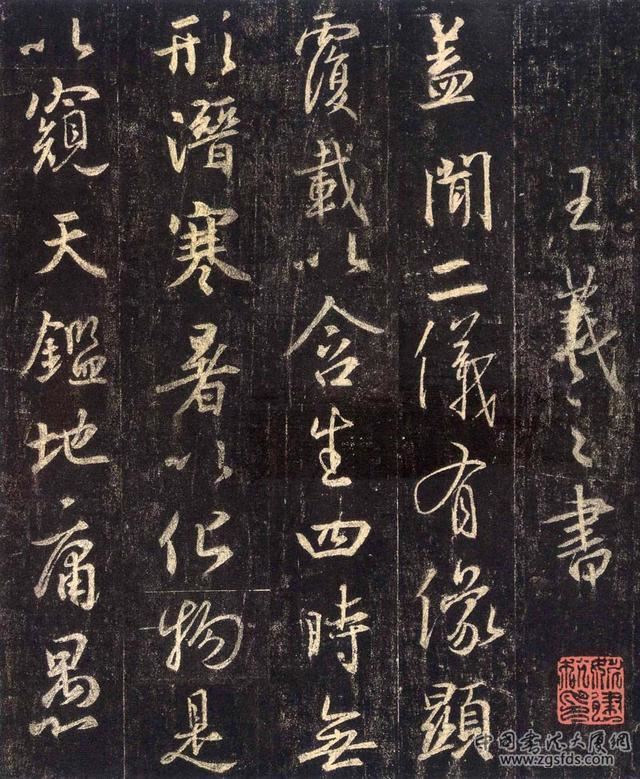 王羲之書
盖聞二儀有像顯
覆載以含生四時無
形潛寒暑以化物是
以窺天鑑地庸愚
中国书法大展网
www.zgsfds.com